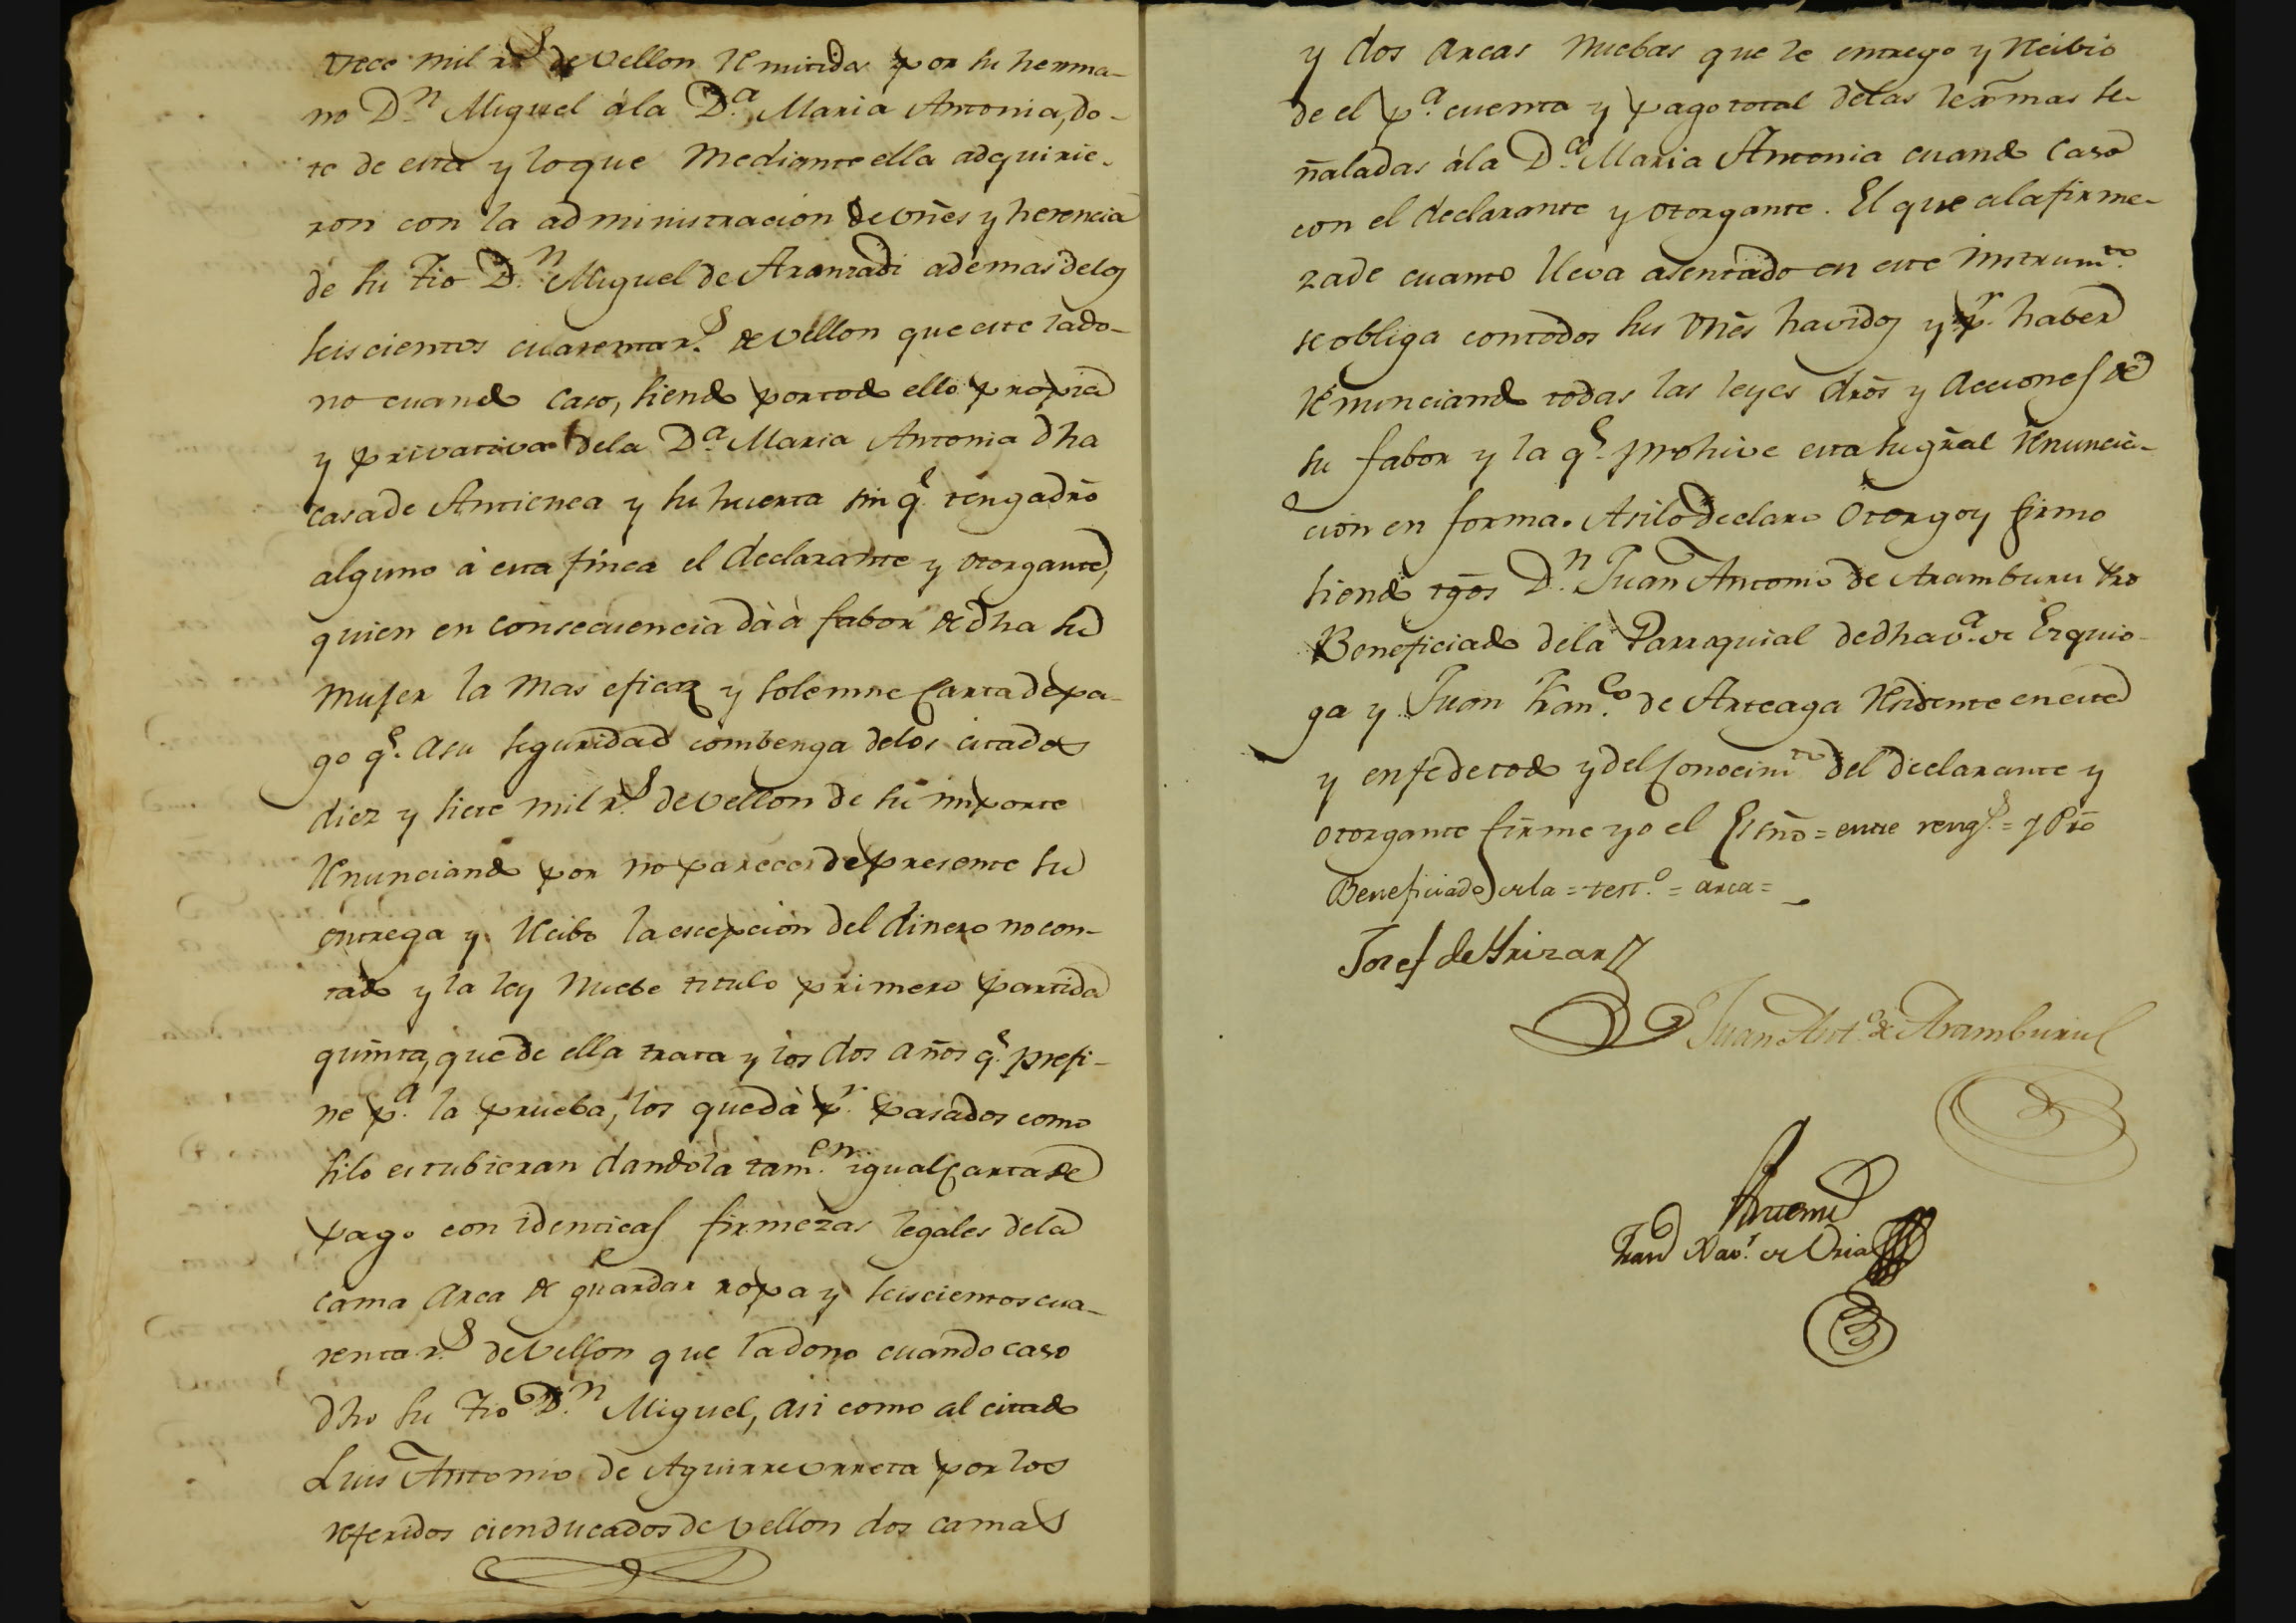 trece mil r.s de vellon remitidos por su herma-
no D.n Miguel á la D.a Maria Antonia, do-
te de esta y lo que mediante ella adquirie-
ron con la administracion de vnẽs y herencia
de su tio D.n Miguel de Aranzadi ademas delos
seiscientos cuarenta r.s de vellon que este la do-
no cuando caso, siendo por todo ello propia
y privativa dela D.a Maria Antonia dha
casa de Antienea y su huerta sin q.e tenga dr̃o
alguno á esta finca el declarante y otorgante,
quien en consecuencia dà à fabor de dha su
muger la mas eficaz y solemne Carta de pa-
go q.e a su seguridad combenga delos citados
diez y siete mil r.s de vellon de su importe
renunciando por no parecer de presente su
entrega y recibo la escepcion del dinero no con-
tado y la ley nuebe titulo primero partida
quinta, que de ella trata y los dos años q.e prefi-
ne p.a la prueba, los que dà p.r pasados como
si lo estubieran dandola tam.en igual Carta de
pago con identicas firmezas legales dela
cama arca de guardar ropa y seiscientos cua-
renta r.s de vellon que la dono cuando caso
dho su tio D.n Miguel, asi como al citado
Luis Antonio de Aguirreurreta por los
referidos cien ducados de vellon dos camas
y dos arcas nuebas que le entrego y recibio
de el p.a cuenta y pago total delas lex̃mas se-
ñaladas á la D.a Maria Antonia cuando caso
con el declarante y otorgante. El que a la firme-
za de cuanto lleva asentado en este instrum.to
se obliga con todos sus vnẽs havidos y p.r haber
renunciando todas las leyes dr̃os y acciones de
su fabor y la q.e prohive esta su gr̃al renuncia-
cion en forma. Asi lo declaro otorgo y firmo
siendo tg̃os D.n Juan Antonio de Aramburu Pro
Beneficiado dela Parroquial de dha v.a de Ezquio-
ga y Juan Fran.co de Arteaga residente en ella
y en fe de todo y del conocim.to del declarante y
otorgante firme yo el Esño = entre reng.s = y Pr̃o
Beneficiado de la = test.o = arca =
Josef de Yrizar
Juan Ant.o de Aramburu
Antemi
Fran Xav.r de Oria